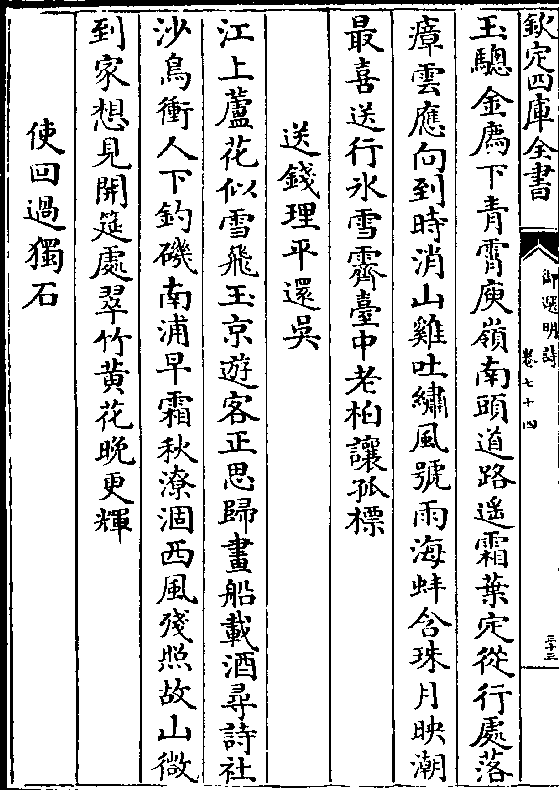 欽定四庫全書
御選明詩
卷七十四
三十三
玉驄金廌下青霄庾嶺南頭道路遙霜葉定從行處落
瘴雲應向到時消山雞吐繡風號雨海蚌含珠月映潮
最喜送行氷雪霽臺中老柏讓孤標
送錢理平還吳
江上蘆花似雪飛玉京遊客正思歸畫船載酒尋詩社
沙鳥衝人下釣磯南浦早霜秋潦涸西風殘照故山微
到家想見開筵處翠竹黃花晚更輝
使回過獨石